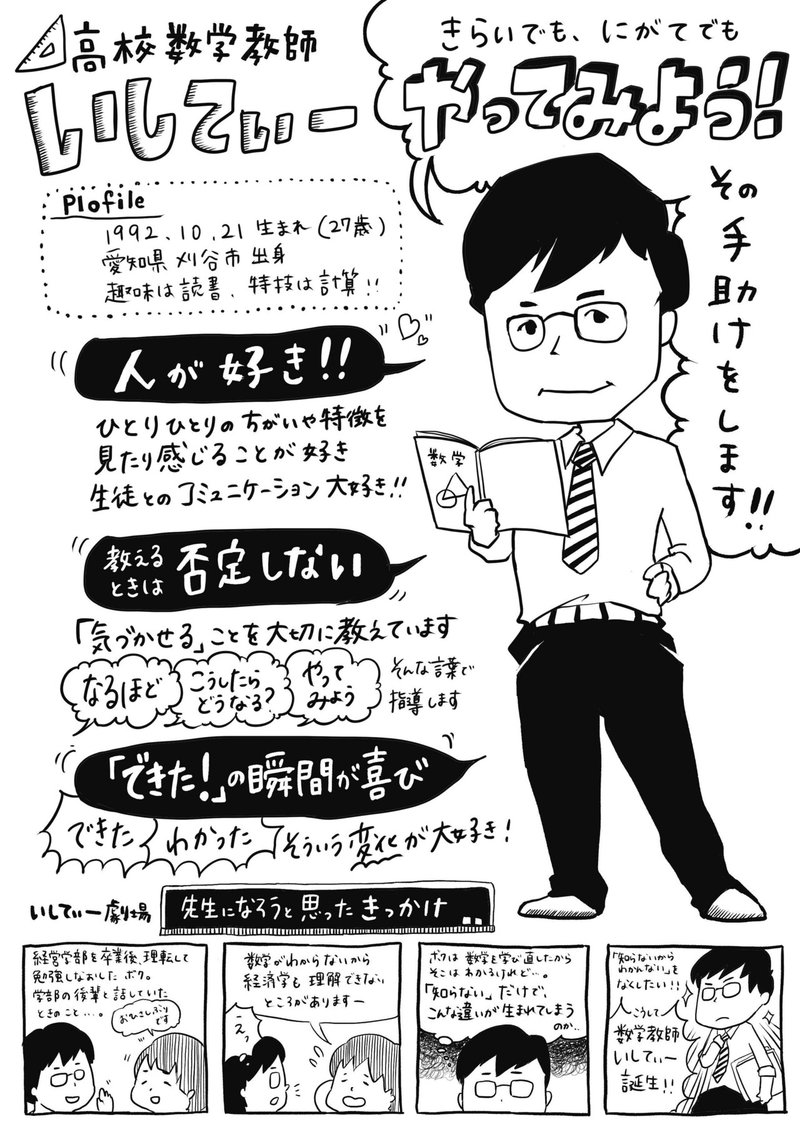 高校数学教師
いしてぃー
きらいでも、にがてでも
やってみよう!
その手助けをします!!
Plofile
1992.10.21 生まれ(27歳)
愛知県 刈谷市 出身
趣味は読書、特技は計算!!
人が好き!!
ひとりひとりのちがいや特徴を
見たり感じることが好き
生徒とのコミュニケーション大好き!!
数学
教える
ときは
否定しない
「気づかせる」ことを大切に教えています
なるほど
こうしたら
どうなる?
やって
みよう
そんな言葉で
指導します
「できた!」の瞬間が喜び
できた
わかった
そういう変化が大好き!
いしてぃー劇場
先生になろうと思ったきっかけ
経営学部を卒業後、理転して
勉強しなおしたボク。
学部の後輩と話していた
ときのこと…。
おひさしぶり
です
数学がわからないから
経済学も理解できない
ところがありますー
えっ
ボクは数学を学び直したから
そこはわかるけれど…。
「知らない」だけで、
こんな違いが生まれてしまう
のか..
「知らないから
わかんない」を
なくしたい!!
こうして
数学教師
いしてぃー
誕生!!